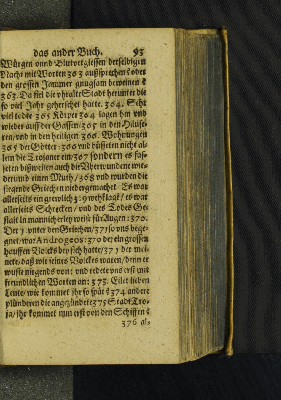 das ander Buch. 93
Würgen unnd Blutvergiessen derselbigen
Nacht mit Worten 363 außsprechen? oder
den grossen Jammer gnugsam beweinen?
363. Da fiel die uhralte Stadt herunter die
so viel Jahr geherrschet hatte. 364. Sehr
viel todte 363 Körper 304 lagen hin und
wieder auff der Gassen/305 in den Häuse-
ren/und in den heiligen 366. Wohnungen
365 der Götter: 306 und büsseten nicht al-
lein die Trojaner ein/307 sondern es fas-
seten bißweilen auch die Uberwundene wie-
derumb einen Muth/368 und wurden die
siegende Griechen niedergemacht. Es war
allerseits ein grewlich 3:9 wehklagē/es war
allerseits Schrecken/und des Todes Ge-
stalt in mancherley weise für Augen: 370.
Der 1. unter den Griechen/371 so uns bege-
gnet/war Androgeos: 370 der ein grossen
hauffen Volcks bey sich hatte/371 der mei-
nete/daß wir seines Volckes waren/denn er
wuste nirgends von: und redete uns erst mit
freundlichen Worten an: 373. Eilet lieben
Leute/wie kommet ihr so spät? 374 andere
plünderen die angezündete 375 Stadt Tro-
ja/ihr kommet nun erst von den Schiffen?
376 al,